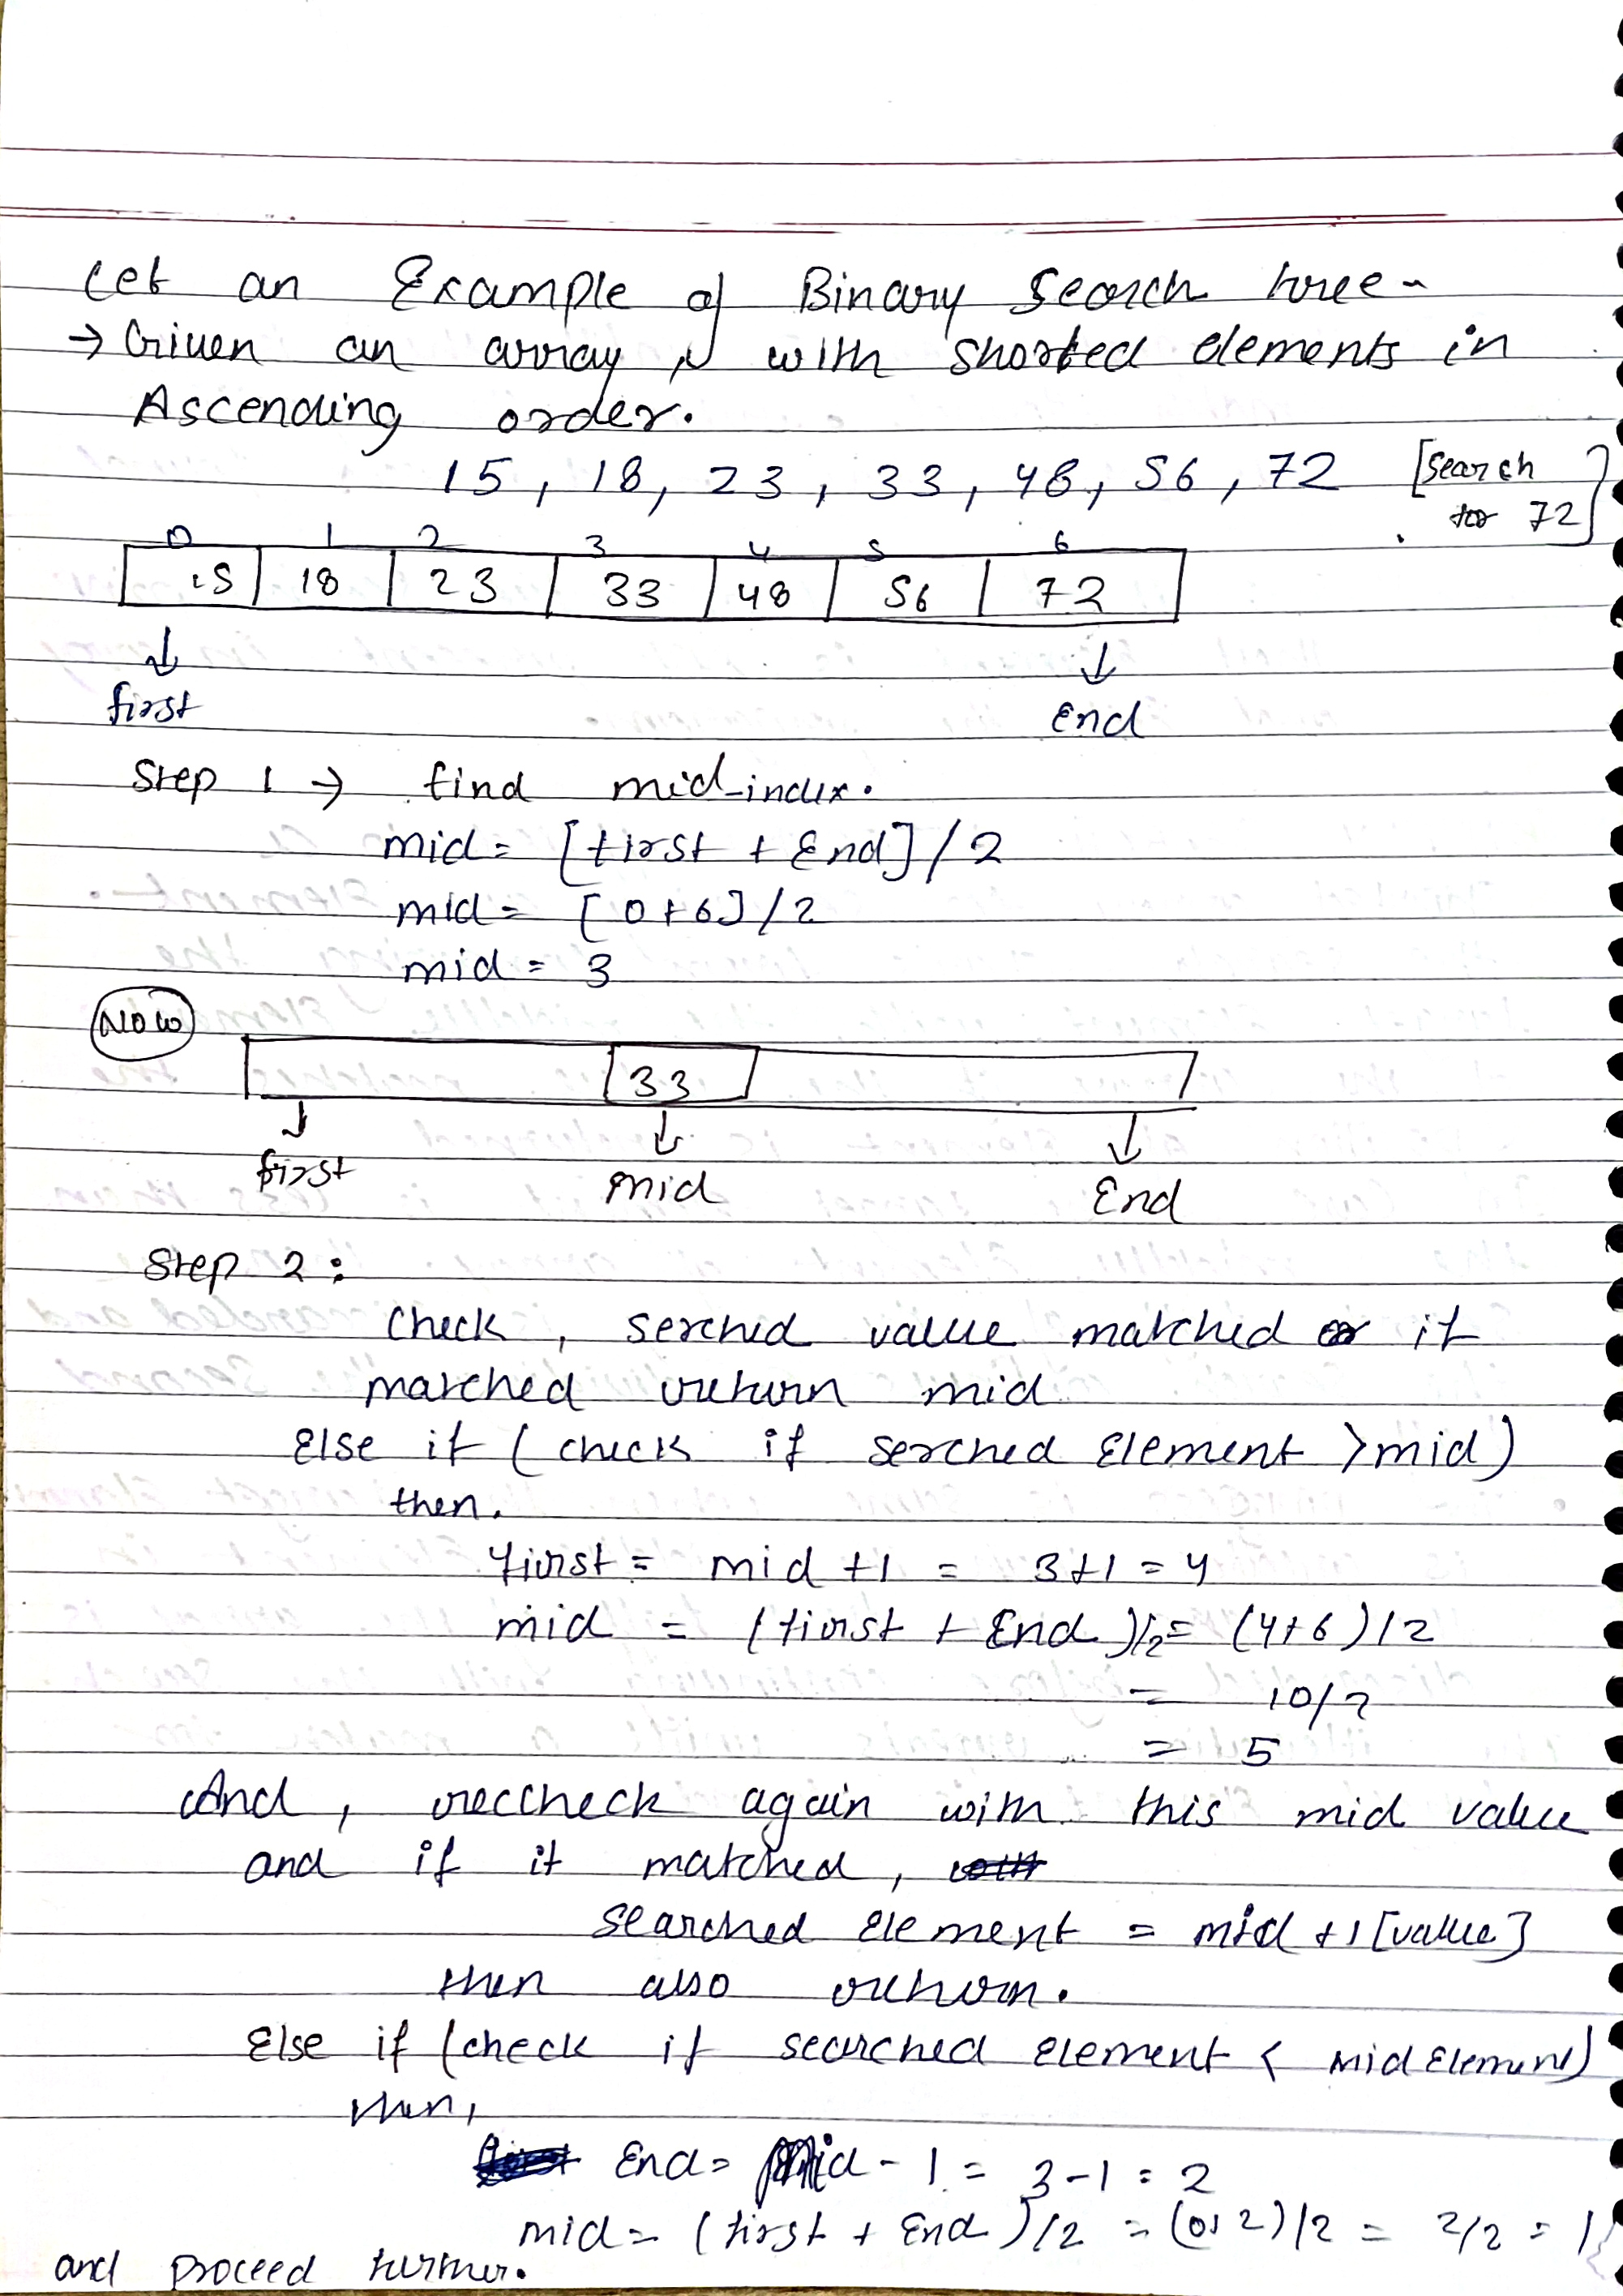 Let an Example of Binary Search tree -
→ Given an array, with shorted elements in
Ascending order.
15, 18, 23, 33, 48, 56, 72 [search for 72]
0 1 2 3 4 5 6
15 18 23 33 48 56 72
↓ ↓
first End
Step 1 → find mid-index.
mid = [first + End]/2
mid = [0+6]/2
mid = 3
Now
33
↓ ↓ ↓
first mid End
Step 2:
Check, serched value matched if
matched return mid
Else if (check if serched Element > mid)
then,
first = mid + 1 = 3+1 = 4
mid = (first + End)/2 = (4+6)/2
= 10/2
= 5
And, reccheck again with this mid value
and if it matched,
searched Element = mid + 1 [value]
then also return.
Else if (check if searched element < mid Element)
then,
End = Mid - 1 = 3-1 = 2
mid = (first + End)/2 = (0+2)/2 = 2/2 = 1
and proceed further.